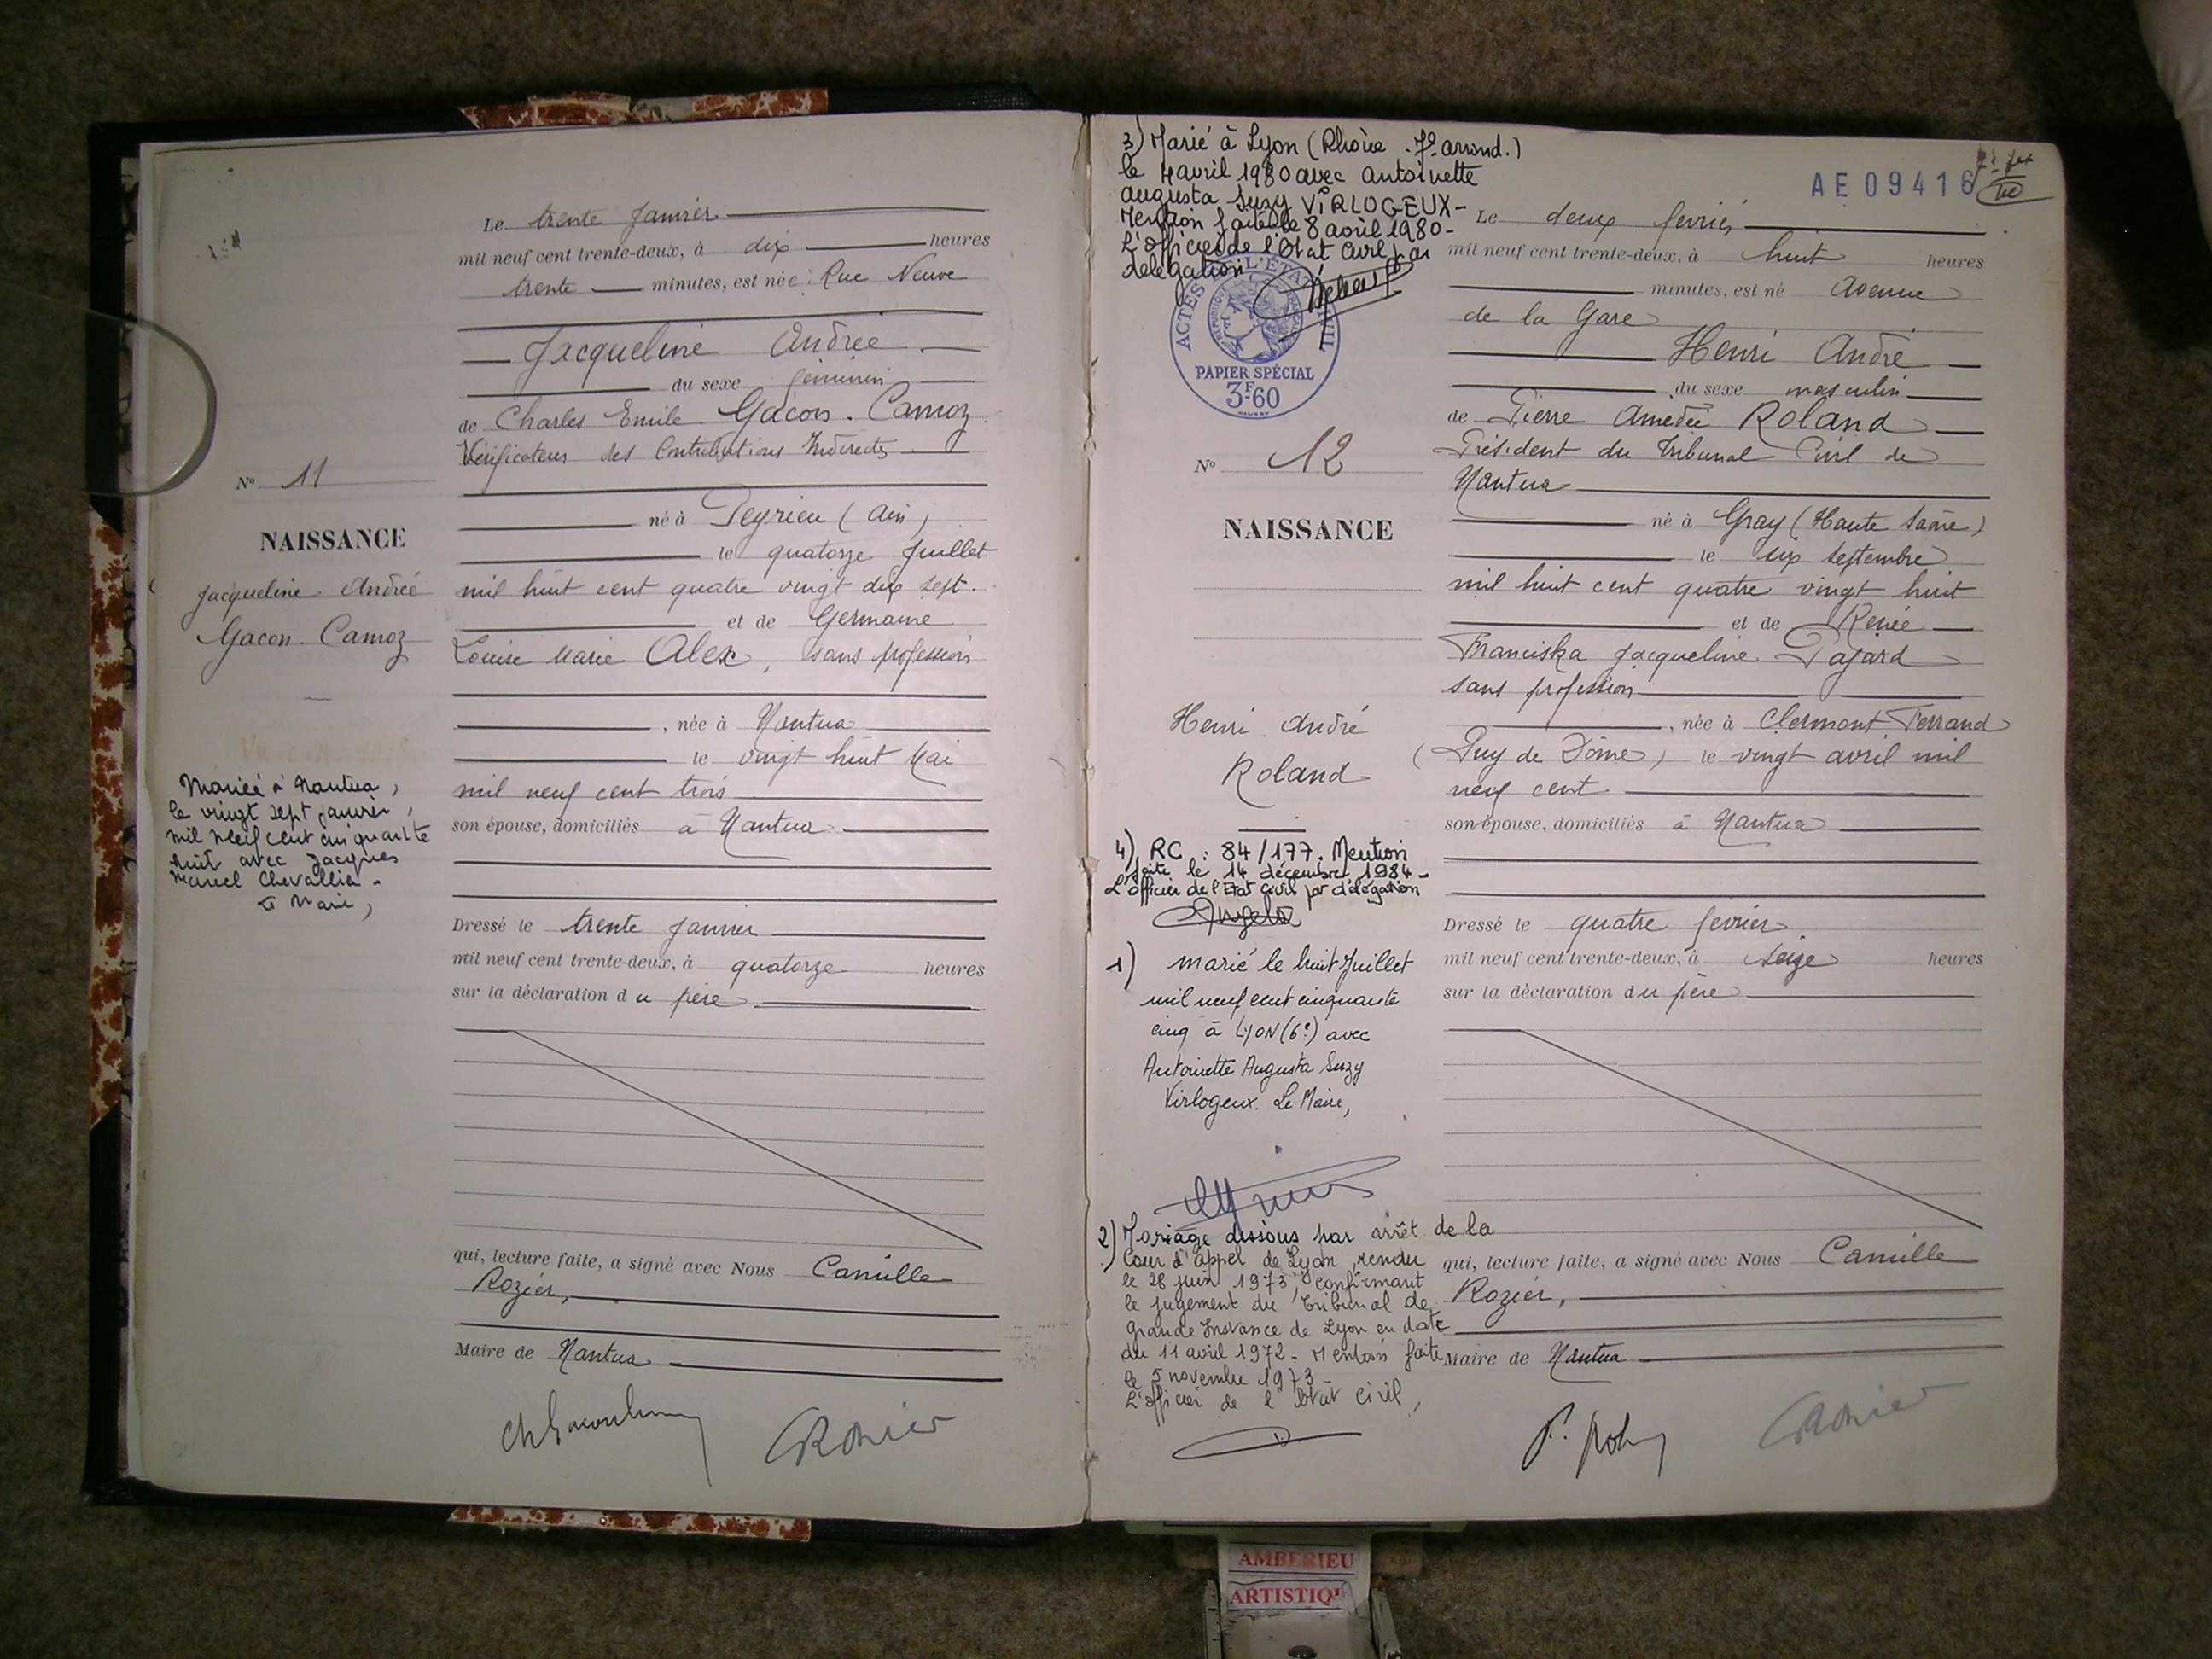 Le trente Janvier
mil neuf cent trente-deux, à dix heures
trente minutes, est née : Rue Neuve
Jacqueline Andrée
du sexe féminin
de Charles Emile Gacon-Camoz
Vérificateur des Contributions Indirectes
né à Peyrieu (Ain)
le quatorze Juillet
mil huit cent quatre vingt dix sept.
et de Germaine
Louise Marie Alex, sans profession
, née à Nantua
le vingt huit Mai
mil neuf cent trois
son épouse, domiciliés à Nantua
Dressé le trente Janvier
mil neuf cent trente-deux, à quatorze heures
sur la déclaration du père
qui, lecture faite, a signé avec Nous Camille
Rozier,
Maire de Nantua
N° 11
NAISSANCE
Jacqueline Andrée
Gacon-Camoz
Mariée à Nantua,
le vingt sept janvier,
mil neuf cent cinquante
huit avec Jacques
Marcel Chevallier.
Le Maire,
3) Marié à Lyon (Rhône - 7e arrond.)
le 4 avril 1980 avec Antoinette
Augusta Suzy VIRLOGEUX-
Mention faite le 8 avril 1980-
L'officier de l'Etat Civil par
délégation
ACTES DE L'ETAT CIVIL
PAPIER SPÉCIAL
3F60
N° 12
NAISSANCE
Henri André
Roland
4) RC : 84/177. Mention
faite le 14 décembre 1984-
L'officier de l'Etat Civil par délégation
1) marié le huit Juillet
mil neuf cent cinquante
cinq à LYON (6e) avec
Antoinette Augusta Suzy
Virlogeux. Le Maire,
2) Mariage dissous par arrêt de la
Cour d'appel de Lyon, rendu
le 28 juin 1973, confirmant
le jugement du Tribunal de
Grande Instance de Lyon en date
du 11 avril 1972. Mention faite
le 5 novembre 1973
L'officier de l'Etat Civil,
AE 09416
Le deux février
mil neuf cent trente-deux, à huit heures
minutes, est né Avenue
de la Gare
Henri André
du sexe masculin
de Pierre Amédée Roland
Président du Tribunal Civil de
Nantua
né à Gray (Haute Saône)
le six Septembre
mil huit cent quatre vingt huit
et de Renée
Franciska Jacqueline Pajard
sans profession
, née à Clermont-Ferrand
(Puy de Dôme) le vingt avril mil
neuf cent.
son épouse, domiciliés à Nantua
Dressé le quatre février
mil neuf cent trente-deux, à seize heures
sur la déclaration du père
qui, lecture faite, a signé avec Nous Camille
Rozier,
Maire de Nantua
AMBERIEU
ARTISTIQ